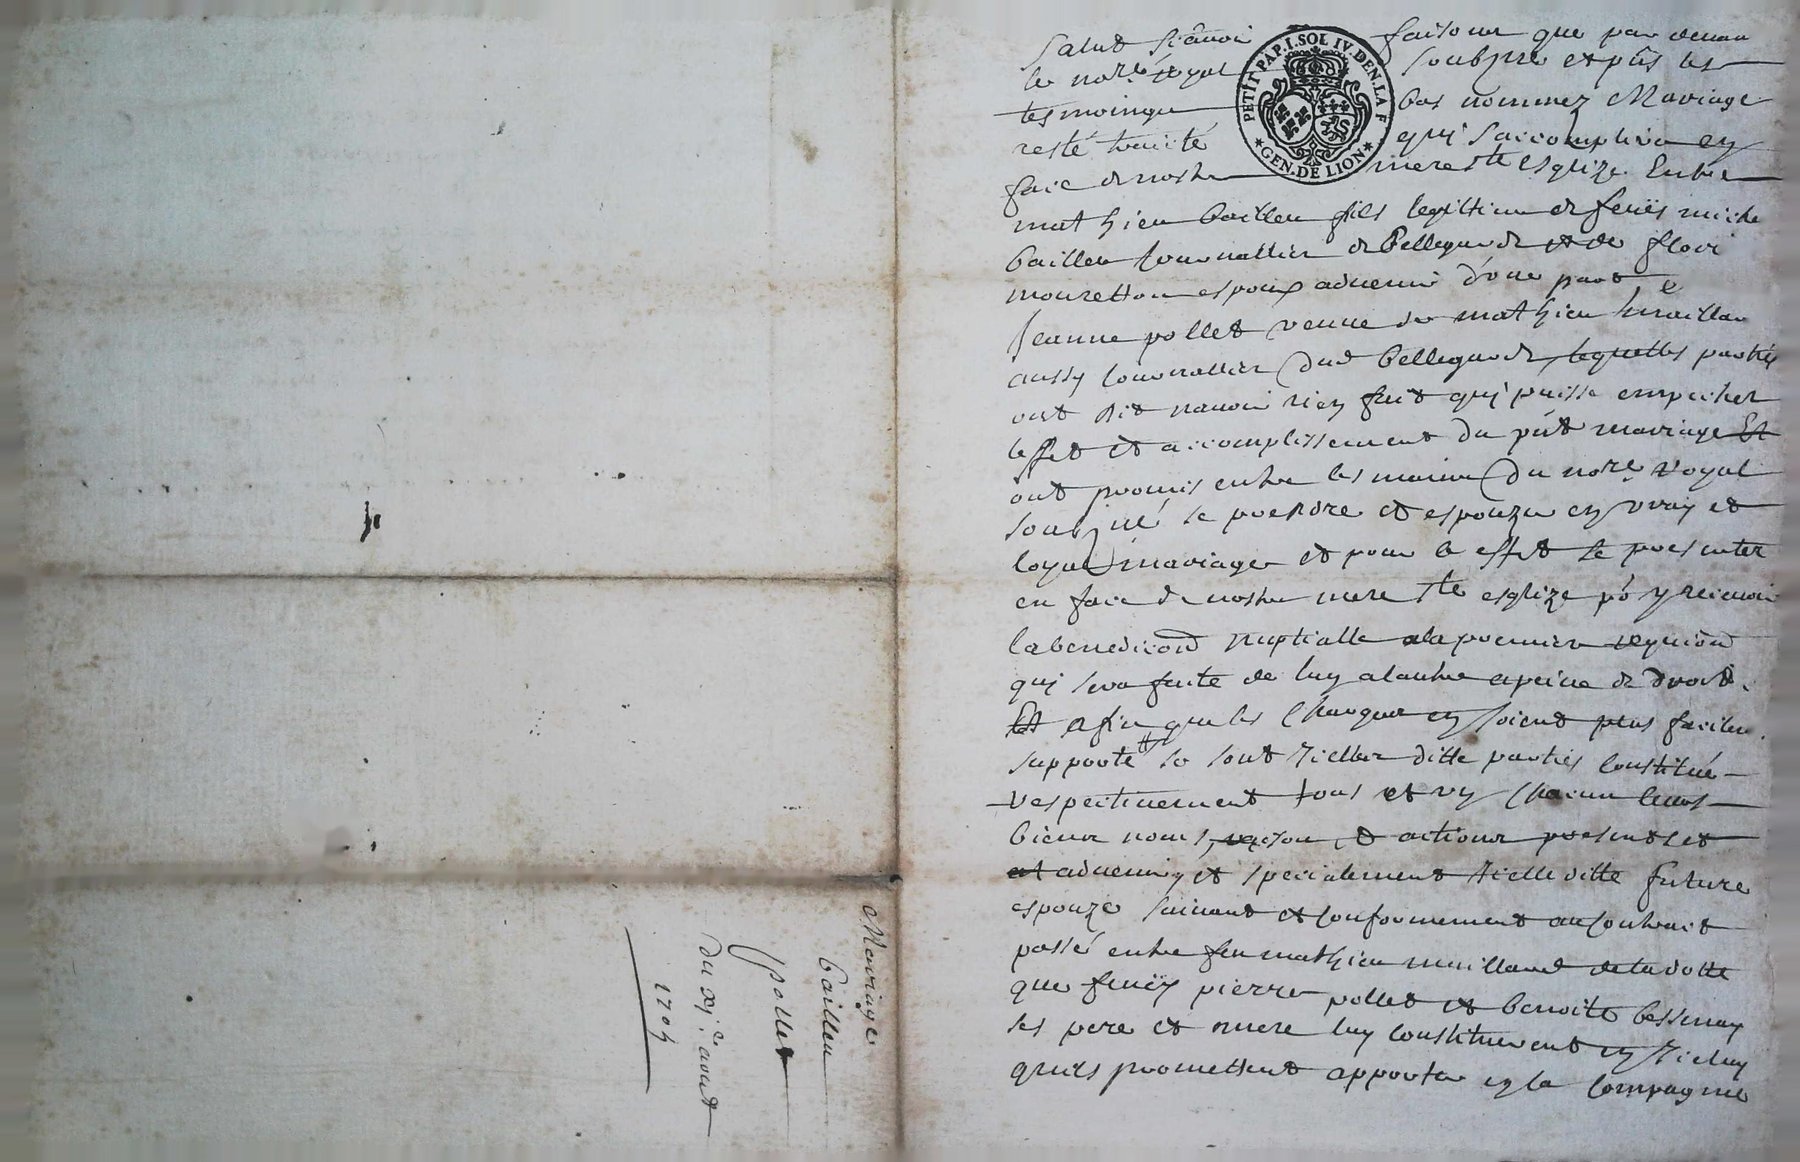 Salut sçavoir faisons que par devan
le nore royal soubzné et pñs les
tesmoings bas nommez Mariage
resté traicté qui s'accomplira en
face de nostre mere ste esglize Entre
mathieu bailleu fils legittime de feuës miche
bailleu journallier de Bellegarde et de flori
mouretton espoux advenir d'une part e
Jeanne pollet veuve de mathieu
aussy journallier dud bellegarde lequelles parties
ont dit n'avoir rien fait qui puisse empecher
leffet et accomplissement du pñt mariage Et
ont promis entre les mains du nore royal
soubzné se prendre et espouzer en vray et
loyal mariage et pour c'effet se presenter
en face de nostre mere ste esglize po y recevoir
la benediction nuptialle a la premiere requi͠on
qui sera faite de luy a lautre a peine de droit.
Et afin que les charges en soient plus facilem
supporté se sont icelles ditte parties constitué
respectivement tous et un chacun leurs
biens noms, raison, & actions presents et
et advenir, et specialement icelle ditte future
espouze suivant et conformement au contrait
passé entre feu mathieu mailland de ladotte
que feuës pierre pollet et benoite bessenay
ses pere et mere luy constituerent en iceluy
quils promettent apporter en la compagnie
PETIT PAP. I. SOL IV. DEN. LA F.
GEN. DE LION
Mariage
bailleu
pollet
du xje aout
1705